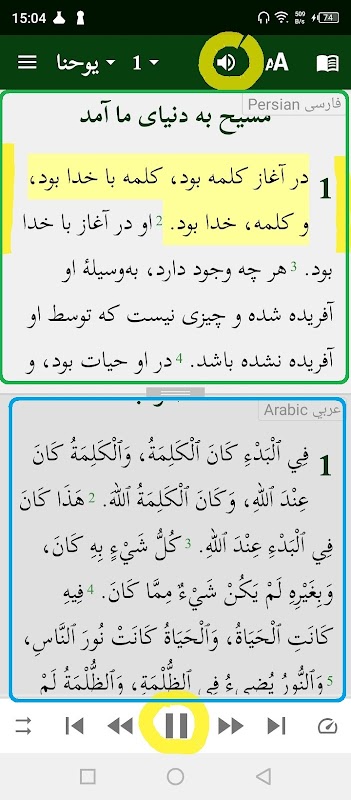 15:04
509 B/s
74
يوحنا
1
AA
فارسی Persian
مسیح به دنیای ما آمد
1 در آغاز کلمه بود، کلمه با خدا بود،
و کلمه، خدا بود. 2 او در آغاز با خدا
بود. 3 هر چه وجود دارد، به‌وسیلهٔ او
آفریده شده و چیزی نیست که توسط او
آفریده نشده باشد. 4 در او حیات بود، و
عربي Arabic
1 فِي ٱلْبَدْءِ كَانَ ٱلْكَلِمَةُ، وَٱلْكَلِمَةُ كَانَ
عِنْدَ ٱللهِ، وَكَانَ ٱلْكَلِمَةُ ٱللهَ. 2 هَذَا كَانَ
فِي ٱلْبَدْءِ عِنْدَ ٱللهِ. 3 كُلُّ شَيْءٍ بِهِ كَانَ،
وَبِغَيْرِهِ لَمْ يَكُنْ شَيْءٌ مِمَّا كَانَ. 4 فِيهِ
كَانَتِ ٱلْحَيَاةُ، وَٱلْحَيَاةُ كَانَتْ نُورَ ٱلنَّاسِ،
5 وَٱلنُّورُ يُضِيءُ فِي ٱلظُّلْمَةِ، وَٱلظُّلْمَةُ لَمْ